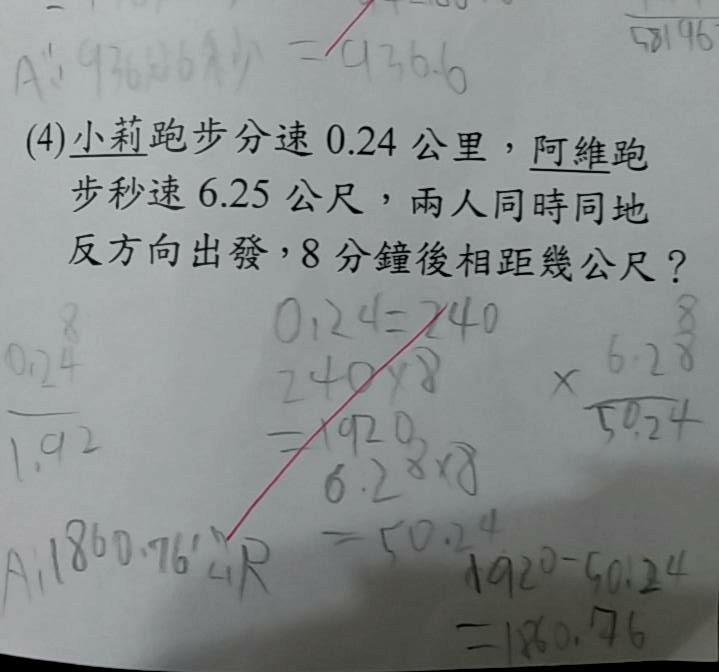 58196
= 936.6
(4)小莉跑步分速 0.24 公里，阿維跑
步秒速 6.25 公尺，兩人同時同地
反方向出發，8 分鐘後相距幾公尺？
8
0.24
1.92
0.24=240
240×8
=1920
6.28×8
=50.24
8
× 6.28
50.24
1920-50.24
=1860.76
A:1860.76公尺